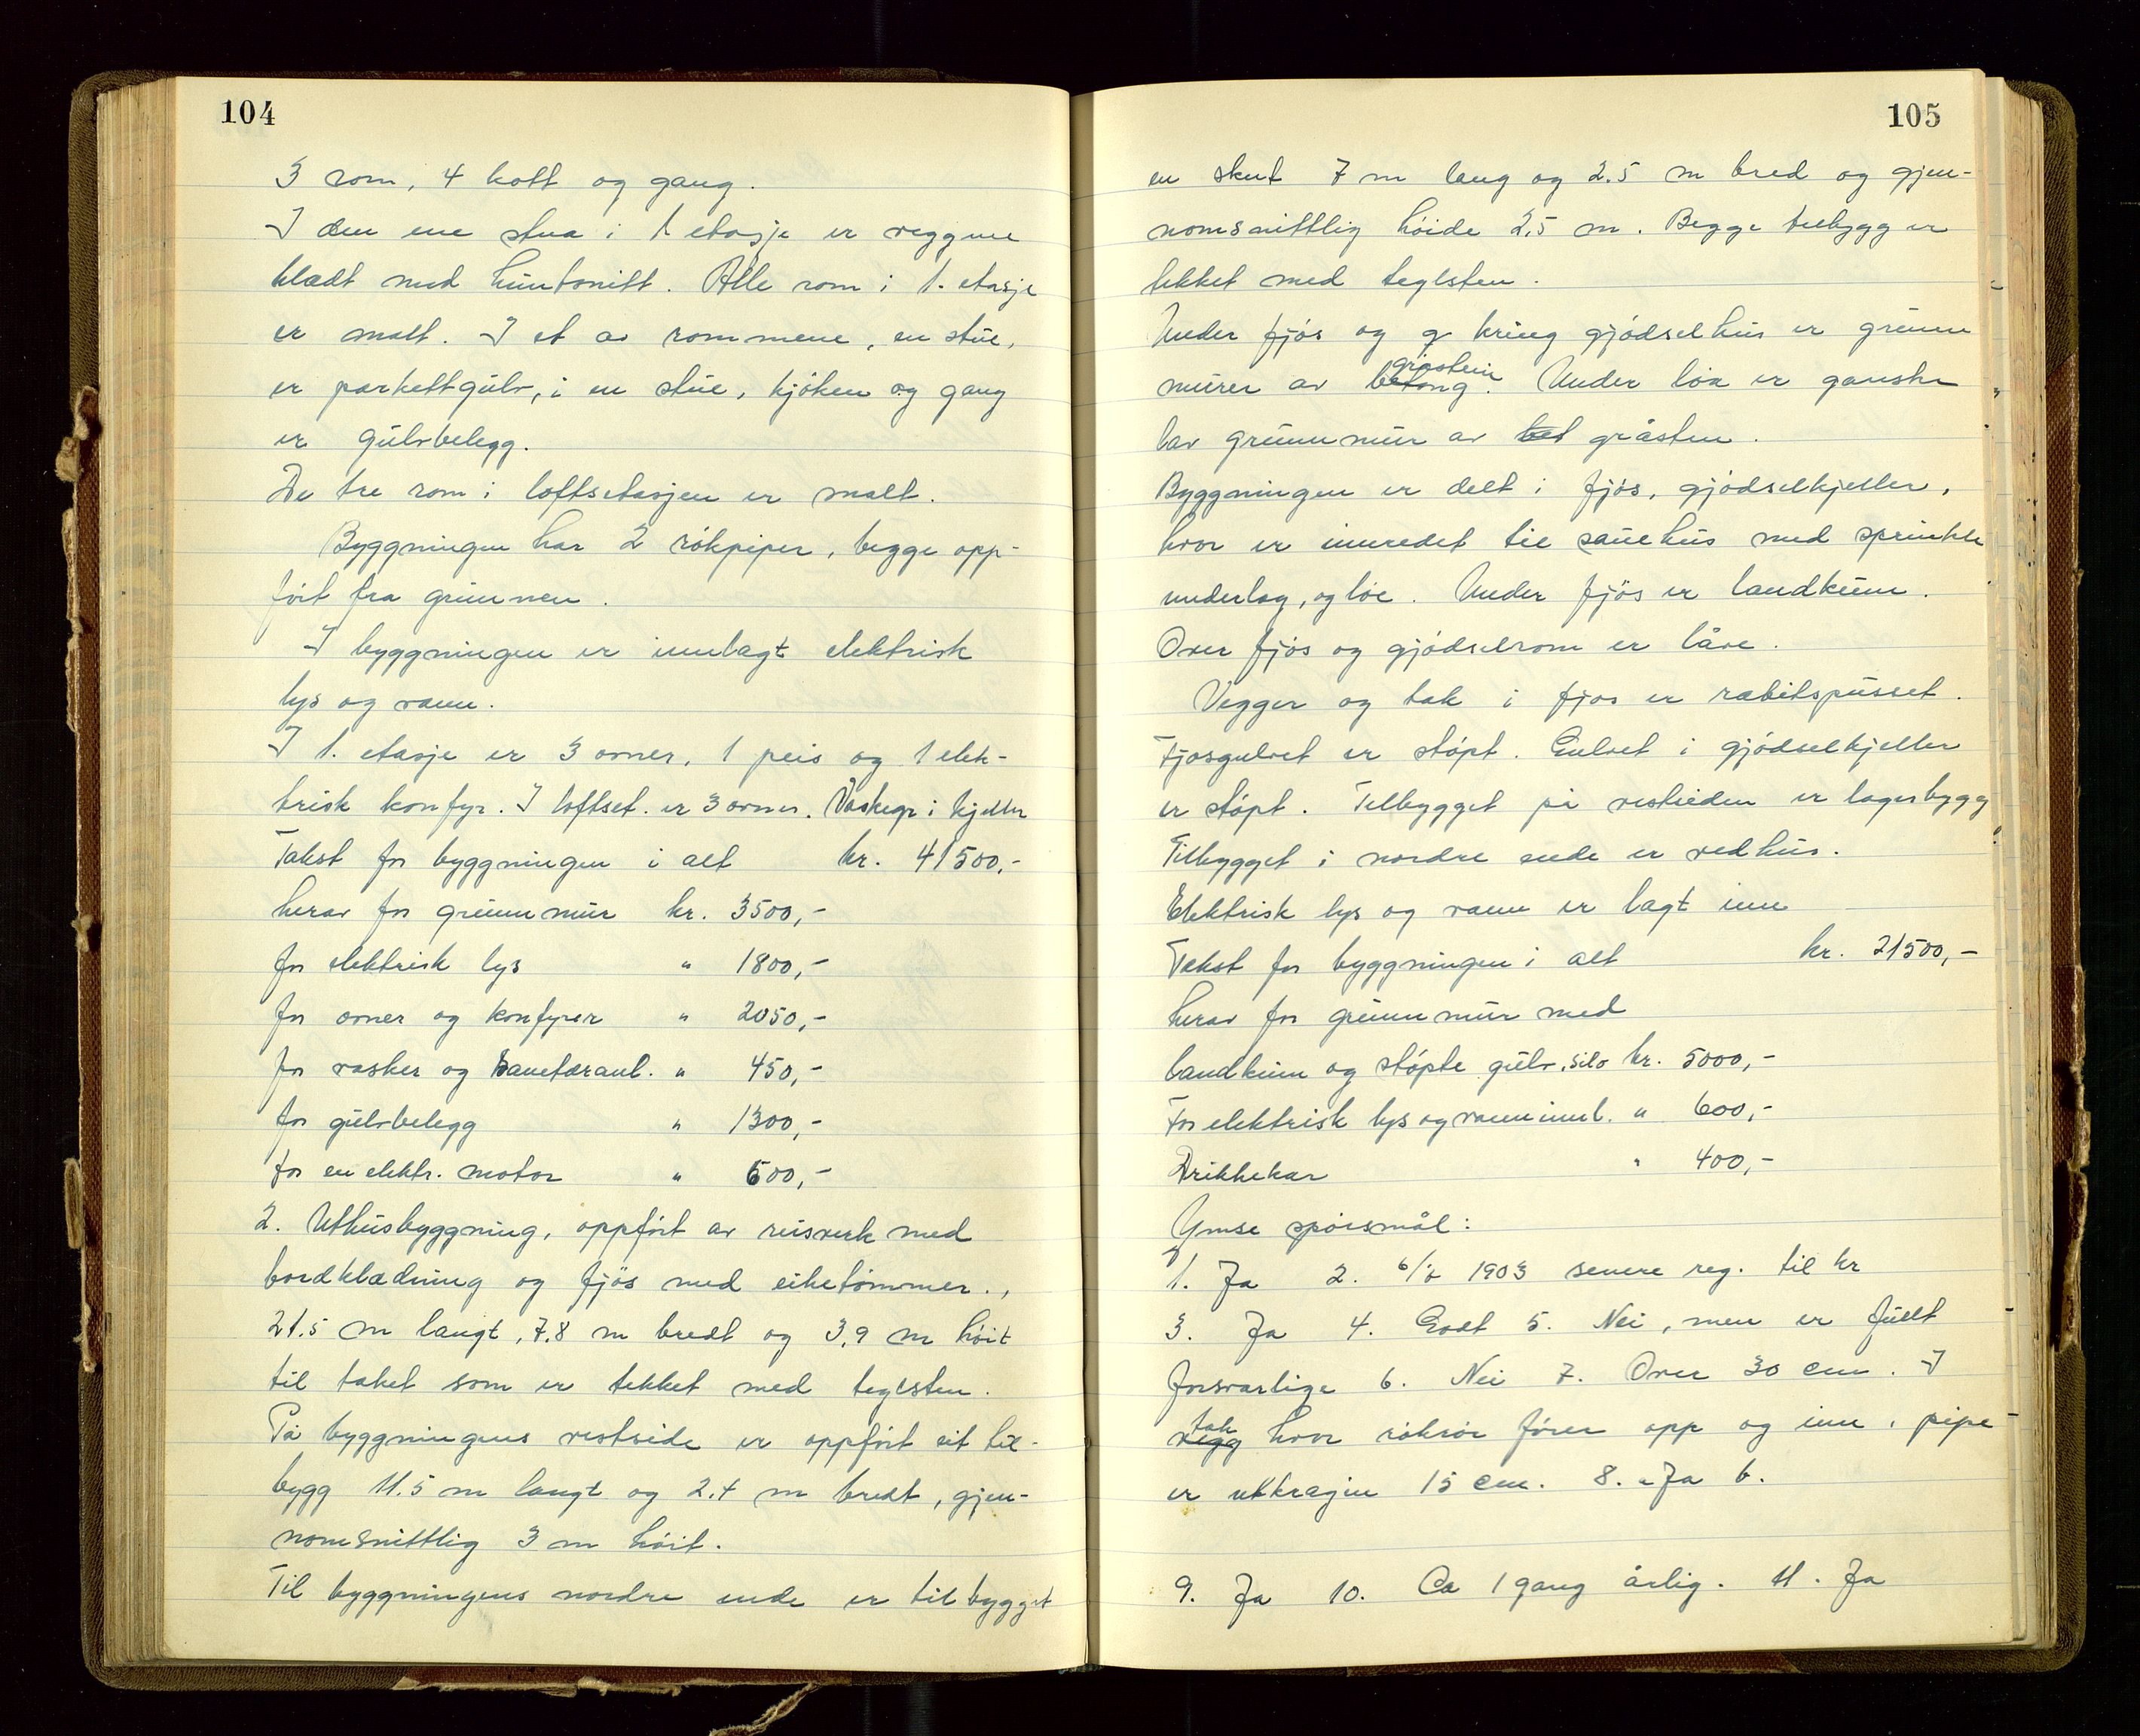 104
3 rom, 4 kott og gang.
I den ene stua i 1 etasje er veggene
kledt med huntonitt. Alle rom i 1. etasje
er malt. I et av rommene, en stue,
er parkettgulv, i en stue, kjøken og gang
er gulvbelegg.
De tre rom i loftsetasjen er malt.
Byggningen har 2 rökpiper, begge opp-
fört fra grunnen.
I byggningen er innlagt elektrisk
lys og vann.
I 1. etasje er 3 ovner, 1 peis og 1 elek-
trisk komfyr. I loftset. er 3 ovner. Vaskegr i kjeller
Takst for byggningen i alt kr. 41500,-
herav for grunnmur kr. 3500,-
for elektrisk lys " 1800,-
for ovner og komfyrer " 2050,-
for vasker og sanetæranl. " 450,-
for gulvbelegg " 1300,-
for en elektr. motor " 600,-
2. Uthusbyggning, oppfört av reisverk med
bordklædning og fjös med eiketömmer.,
21.5 m langt, 7.8 m bredt og 3,9 m höit
til taket som er tekket med teglsten.
På byggningens vestside er oppfört eit til-
bygg 11.5 m langt og 2.4 m bredt, gjen-
nomsnittlig 3 m höit.
Til byggningens nordre ende er tilbygget
105
en skut 7 m lang og 2.5 m bred og gjen-
nomsnittlig höide 2,5 m. Begge tilbygg er
tekket med teglsten.
Under fjös og g kring gjödselhus er grunn
gråstein
murer av betong. Under löa er ganske
lav grunnmur av bet gråsten.
Byggningen er delt i fjös, gjödselkjeller,
hvor er innredet til sauehus med sprinkle
underlag, og löe. Under fjös er landkum.
Over fjös og gjödselrom er låve.
Vegger og tak i fjos er rabitspusset.
Fjosgulvet er stöpt. Gulvet i gjödselkjeller
er stöpt. Tilbygget på vestsiden er lagerbygg
Tilbygget i nordre ende er vedhus.
Elektrisk lys og vann er lagt inn
Takst for byggningen i alt kr. 21500,-
herav for grunnmur med
landkum og stöpte gulv, silo kr. 5000,-
For elektrisk lys og vanninnl. " 600,-
Drikkekar " 400,-
Ymse spörsmål:
1. Ja 2. 1903 senere reg. til kr
3. Ja 4. Godt 5. Nei, men er fullt
forsvarlige 6. Nei 7. Over 30 cm. I
tak
vegg hvor rökrör förer opp og inn i pipe-
er utkragin 15 cm. 8. a Ja b.
9. Ja 10. Ca 1 gang årlig. 11. Ja